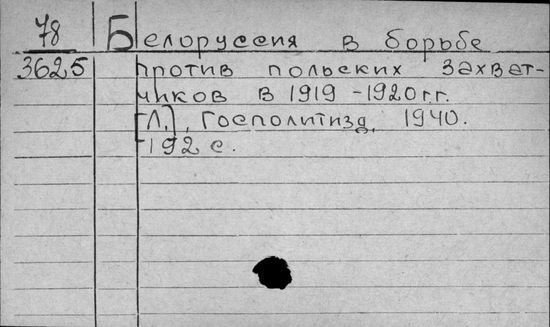 78 Белоруссия в борьбе
3625 против польских захват-
чиков в 1919-1920 г.г.
[Л.], Госполитизд, 1940.
192 с.